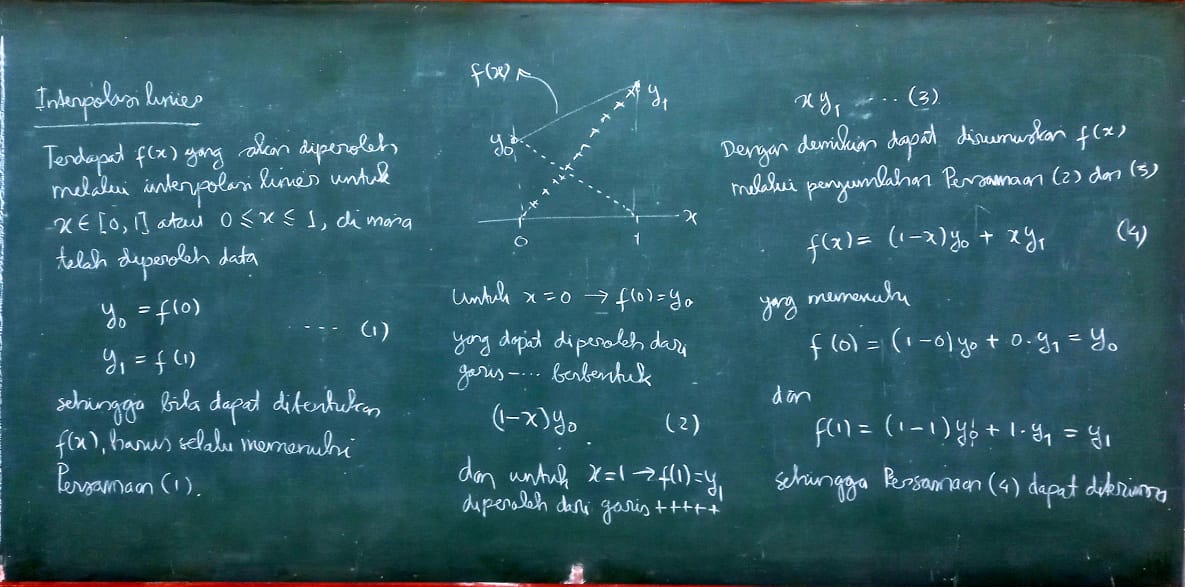 Interpolasi linier
Terdapat f(x) yang akan diperoleh
melalui interpolasi linier untuk
x ∈ [0, 1] atau 0 ≤ x ≤ 1, di mana
telah diperoleh data
y₀ = f(0)
.... (1)
y₁ = f(1)
sehingga bila dapat ditentukan
f(x), harus selalu memenuhi
Persamaan (1).
f(x)
y₁
y₀
x
0 1
untuk x = 0 → f(0) = y₀
yang dapat diperoleh dari
garis -... berbentuk
(1-x)y₀ (2)
dan untuk x=1 → f(1)=y₁
diperoleh dari garis +++++
x y₁ .... (3)
Dengan demikian dapat dirumuskan f(x)
melalui penjumlahan Persamaan (2) dan (3)
f(x) = (1-x)y₀ + xy₁ (4)
yang memenuhi
f(0) = (1-0)y₀ + 0.y₁ = y₀
dan
f(1) = (1-1)y₀ + 1.y₁ = y₁
sehingga Persamaan (4) dapat diterima